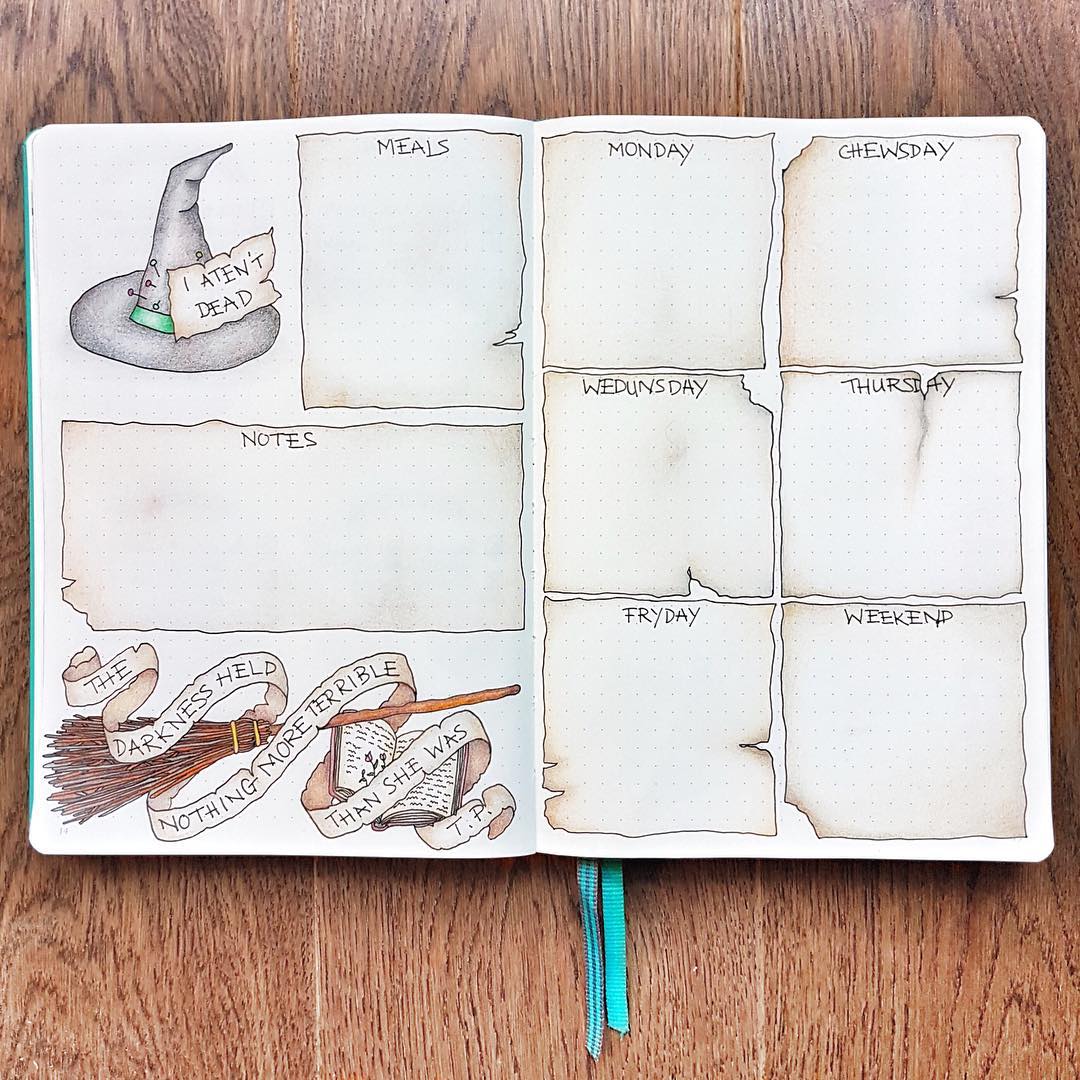 I ATEN'T
DEAD
MEALS
NOTES
THE
DARKNESS HELD
NOTHING MORE TERRIBLE
THAN SHE WAS
T.P.
14
MONDAY
CHEWSDAY
WEDUNSDAY
THURSDAY
FRYDAY
WEEKEND